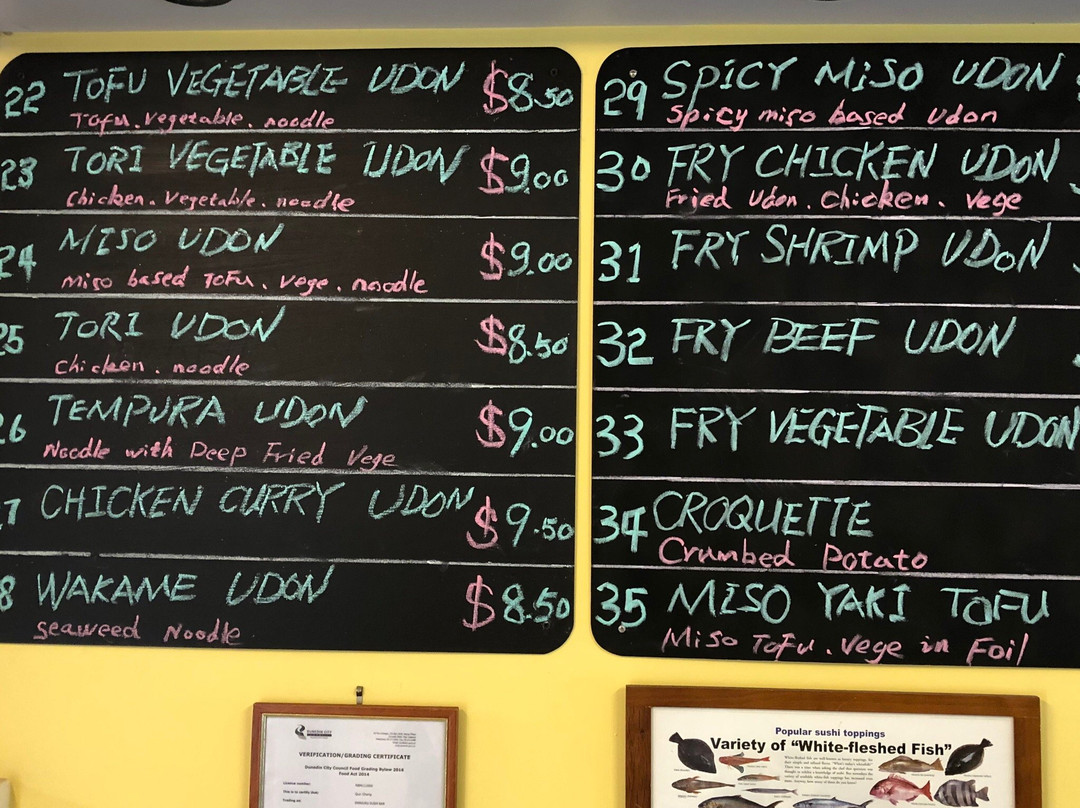 22 TOFU VEGETABLE UDON $8.50
Tofu. Vegetable. noodle
23 TORI VEGETABLE UDON $9.00
Chicken. Vegetable. noodle
24 MISO UDON $9.00
miso based Tofu. Vege. noodle
25 TORI UDON $8.50
Chicken. noodle
26 TEMPURA UDON $9.00
Noodle with Deep Fried Vege
7 CHICKEN CURRY UDON $9.50
8 WAKAME UDON $8.50
seaweed Noodle
29 SPICY MISO UDON
Spicy miso based udon
30 FRY CHICKEN UDON
Fried Udon. Chicken. Vege
31 FRY SHRIMP UDON
32 FRY BEEF UDON
33 FRY VEGETABLE UDON
34 CROQUETTE
Crumbed Potato
35 MISO YAKI TOFU
Miso Tofu. Vege in Foil
DUNEDIN CITY
VERIFICATION/GRADING CERTIFICATE
Dunedin City Council Food Grading Bylaw 2016
Food Act 2014
Licence number:
This is to certify that:
Trading as:
Popular sushi toppings
Variety of “White-fleshed Fish”